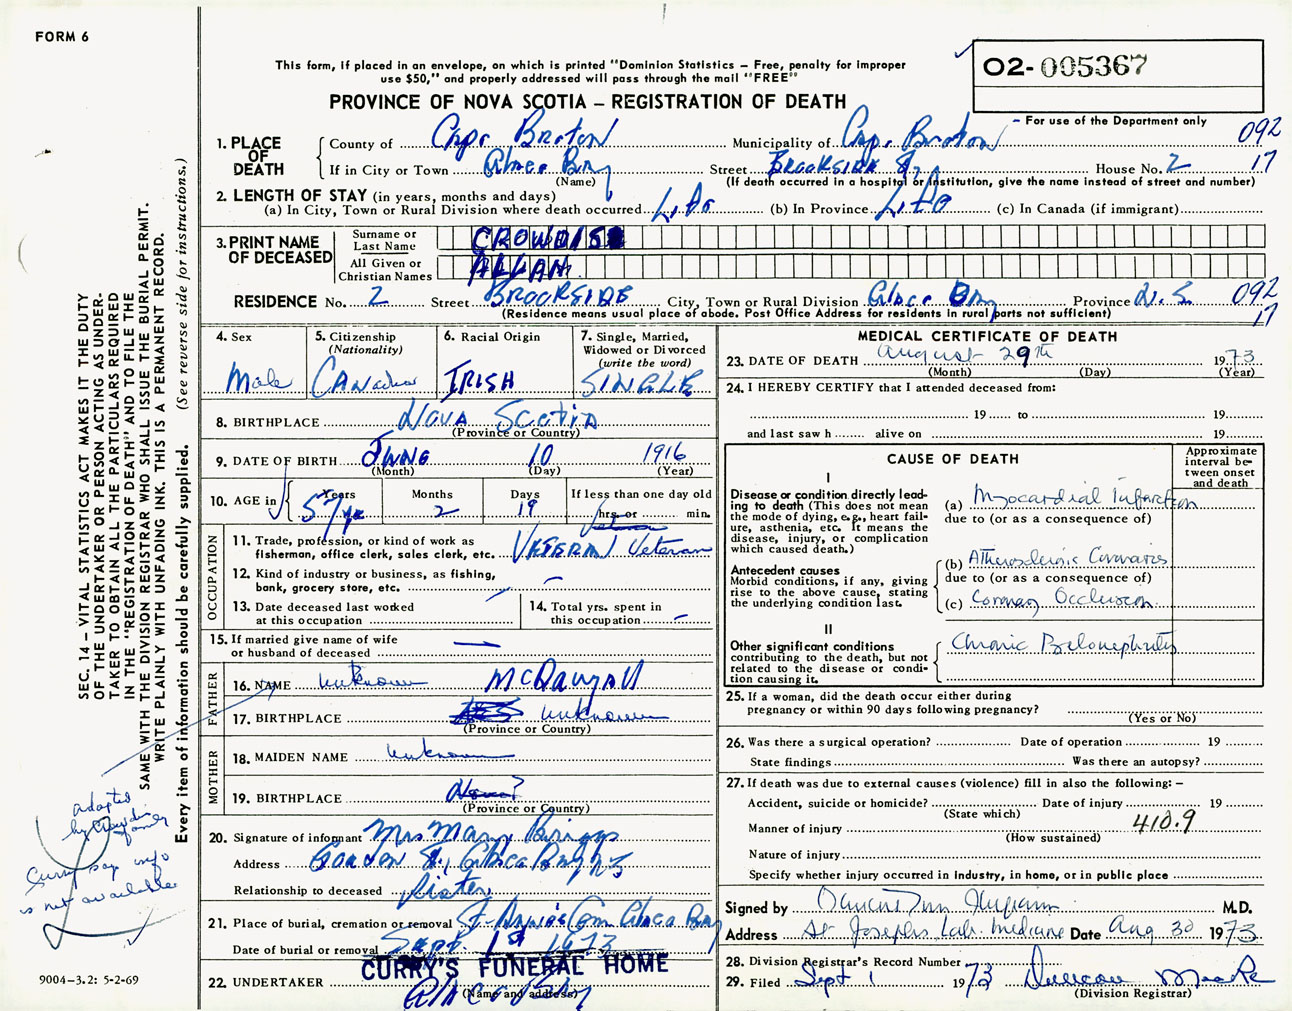 FORM 6
This form, if placed in an envelope, on which is printed "Dominion Statistics – Free, penalty for improper
use $50," and properly addressed will pass through the mail "FREE"
PROVINCE OF NOVA SCOTIA – REGISTRATION OF DEATH
O2-005367
– For use of the Department only
092
17
1. PLACE OF DEATH
County of Cape Breton Municipality of Cape Breton
If in City or Town Glace Bay Street Brookside St, House No. 2
(Name) (If death occurred in a hospital or institution, give the name instead of street and number)
2. LENGTH OF STAY (in years, months and days)
(a) In City, Town or Rural Division where death occurred Life (b) In Province Life (c) In Canada (if immigrant)
3. PRINT NAME OF DECEASED
Surname or Last Name CROWDIS
All Given or Christian Names ALLAN
RESIDENCE No. 2 Street BROOKSIDE City, Town or Rural Division Glace Bay Province N.S. 092
17
(Residence means usual place of abode. Post Office Address for residents in rural parts not sufficient)
4. Sex
Male
5. Citizenship
(Nationality)
Canadian
6. Racial Origin
IRISH
7. Single, Married,
Widowed or Divorced
(write the word)
SINGLE
8. BIRTHPLACE Nova Scotia
(Province or Country)
9. DATE OF BIRTH June 10 1916
(Month) (Day) (Year)
10. AGE in
Years Months Days If less than one day old
57 yrs 2 19 hrs. or min.
OCCUPATION
11. Trade, profession, or kind of work as
fisherman, office clerk, sales clerk, etc. Veteran Veteran
12. Kind of industry or business, as fishing,
bank, grocery store, etc. –
13. Date deceased last worked
at this occupation –
14. Total yrs. spent in
this occupation –
15. If married give name of wife
or husband of deceased —
FATHER
16. NAME Unknown McDougall
17. BIRTHPLACE unknown
(Province or Country)
MOTHER
18. MAIDEN NAME Unknown
19. BIRTHPLACE Nova?
(Province or Country)
20. Signature of informant Mrs Mary Briggs
Address Gordon St, Glace Bay NS
Relationship to deceased Sister
21. Place of burial, cremation or removal St. Anne's Cem Glace Bay
Date of burial or removal Sept. 1st 1973
CURRY'S FUNERAL HOME
22. UNDERTAKER Glace Bay
(Name and address)
MEDICAL CERTIFICATE OF DEATH
23. DATE OF DEATH August 29th 1973
(Month) (Day) (Year)
24. I HEREBY CERTIFY that I attended deceased from:
19 to 19
and last saw h alive on 19
CAUSE OF DEATH
Approximate
interval be-
tween onset
and death
I
Disease or condition directly lead-
ing to death (This does not mean
the mode of dying, e.g., heart fail-
ure, asthenia, etc. It means the
disease, injury, or complication
which caused death.)
(a) Myocardial Infarction
due to (or as a consequence of)
Antecedent causes
Morbid conditions, if any, giving
rise to the above cause, stating
the underlying condition last.
(b) Atherosclerotic Coronaries
due to (or as a consequence of)
(c) Coronary Occlusion
II
Other significant conditions
contributing to the death, but not
related to the disease or condi-
tion causing it.
Chronic Pyelonephritis
25. If a woman, did the death occur either during
pregnancy or within 90 days following pregnancy?
(Yes or No)
26. Was there a surgical operation? Date of operation 19
State findings Was there an autopsy?
27. If death was due to external causes (violence) fill in also the following: –
Accident, suicide or homicide? Date of injury 19
(State which)
410.9
Manner of injury
(How sustained)
Nature of injury
Specify whether injury occurred in industry, in home, or in public place
Signed by M.D.
Address St Josephs Lab. Medicine Date Aug 30 1973
28. Division Registrar's Record Number
29. Filed Sept 1 1973 Duncan
(Division Registrar)
SEC. 14 – VITAL STATISTICS ACT MAKES IT THE DUTY
OF THE UNDERTAKER OR PERSON ACTING AS UNDER-
TAKER TO OBTAIN ALL THE PARTICULARS REQUIRED
IN THE "REGISTRATION OF DEATH" AND TO FILE THE
SAME WITH THE DIVISION REGISTRAR WHO SHALL ISSUE THE BURIAL PERMIT.
WRITE PLAINLY WITH UNFADING INK. THIS IS A PERMANENT RECORD.
Every item of information should be carefully supplied. (See reverse side for instructions.)
adopted
by Crowdis
family
Curry say info
is not available
9004-3.2: 5-2-69